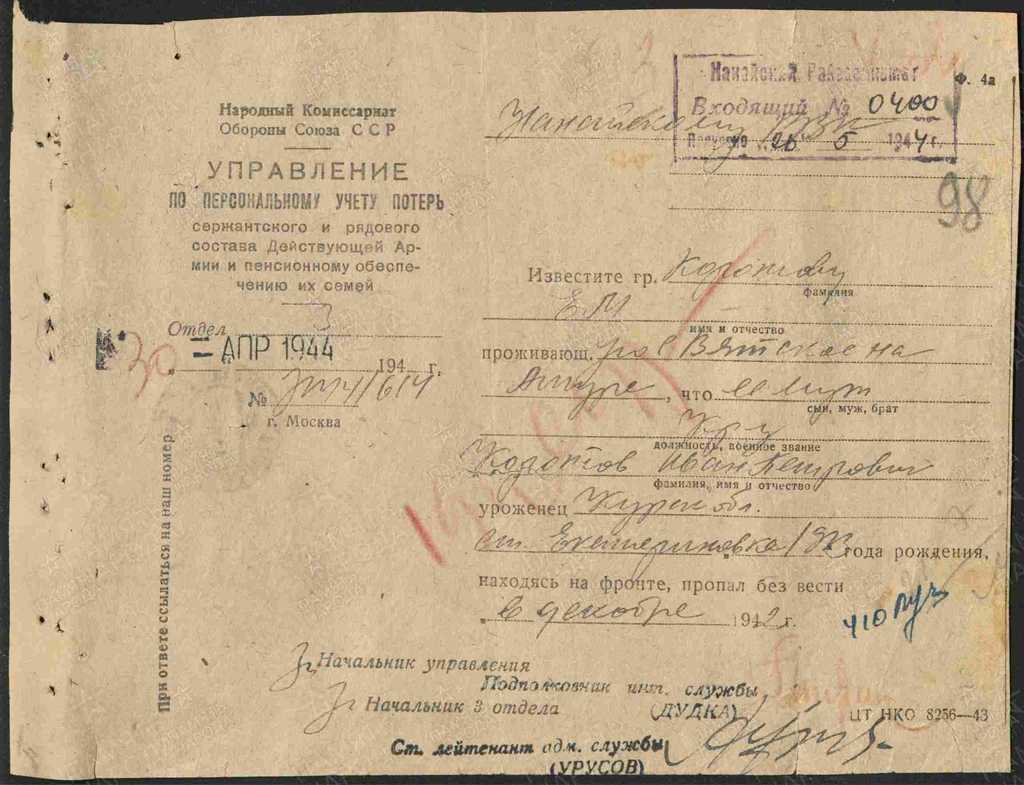 Народный Комиссариат
Обороны Союза ССР
УПРАВЛЕНИЕ
ПО ПЕРСОНАЛЬНОМУ УЧЕТУ ПОТЕРЬ
сержантского и рядового
состава Действующей Ар-
мии и пенсионному обеспе-
чению их семей
Отдел 3
30 АПР 1944 194 г.
№
г. Москва
При ответе ссылаться на наш номер
Ф. 4а
Нанайский Райвоенкомат
Входящий № 0400
Получено „26" 5 1944 г.
Нанайскому РВК
98
Известите гр. Коротову
фамилия
Е М
имя и отчество
проживающ. Вятское на
Амуре, что ее муж
сын, муж, брат
кр-ц
должность, военное звание
Коротов Иван Петрович
фамилия, имя и отчество
уроженец Курской обл.
ст. Екатериновка года рождения,
находясь на фронте, пропал без вести
в декабре 1942 г.
410 руб
Начальник управления
Подполковник инт. службы
(ДУДКА)
Начальник 3 отдела
Ст. лейтенант адм. службы
(УРУСОВ)
ЦТ НКО 8256—43